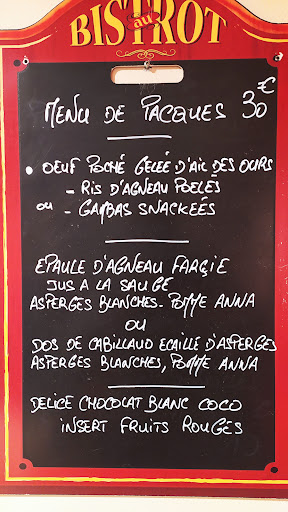 BISTROT
au
MENU DE PACQUES 30€
• OEUF POCHÉ GELÉE D'AIL DES OURS
- RIS D'AGNEAU POELÉS
ou - GAMBAS SNACKEÉS
EPAULE D'AGNEAU FARÇIE
JUS A LA SAUGE
ASPERGES BLANCHES - POMME ANNA
OU
DOS DE CABILLAUD ECAILLE D'ASPERGES
ASPERGES BLANCHES, POMME ANNA
DELICE CHOCOLAT BLANC COCO
INSERT FRUITS ROUGES